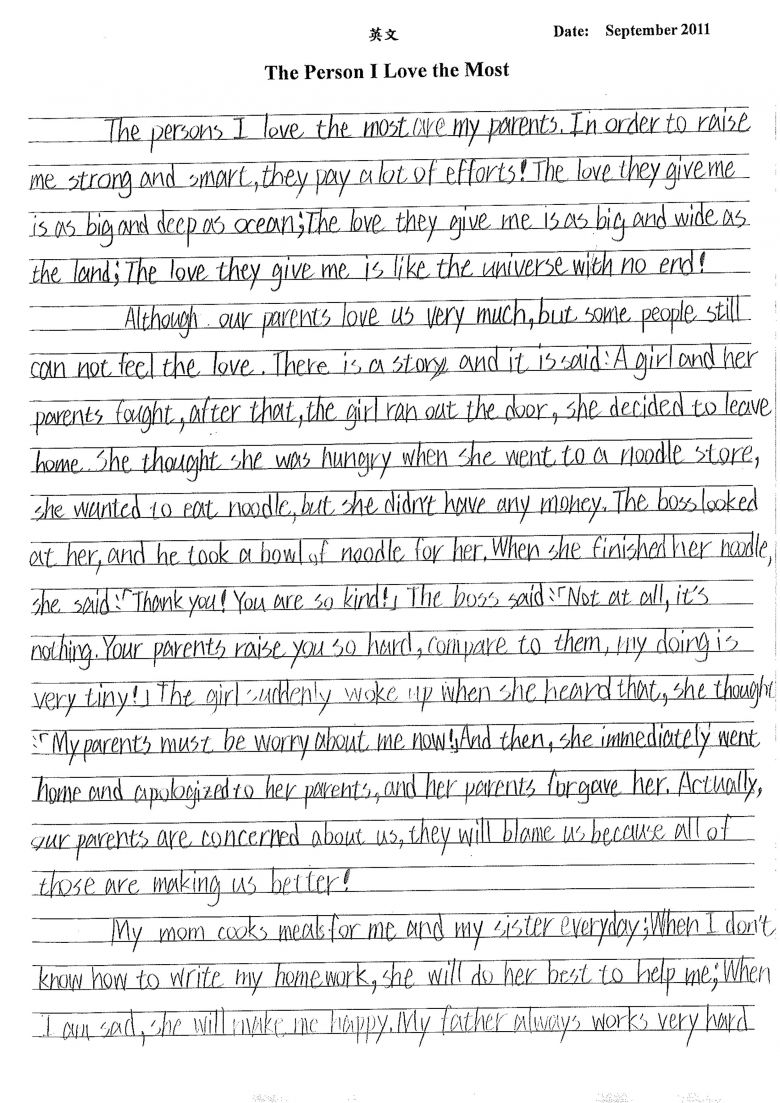 英文
Date: September 2011
The Person I Love the Most
The persons I love the most are my parents. In order to raise
me strong and smart, they pay a lot of efforts! The love they give me
is as big and deep as ocean; The love they give me is as big and wide as
the land; The love they give me is like the universe with no end!
Although our parents love us very much, but some people still
can not feel the love. There is a story, and it is said: A girl and her
parents fought, after that, the girl ran out the door, she decided to leave
home. She thought she was hungry when she went to a noodle store,
she wanted to eat noodle, but she didn't have any money. The boss looked
at her, and he took a bowl of noodle for her. When she finished her noodle,
she said:「Thank you! You are so kind!」 The boss said:「Not at all, it's
nothing. Your parents raise you so hard, compare to them, my doing is
very tiny!」 The girl suddenly woke up when she heard that, she thought
:「My parents must be worry about me now!」And then, she immediately went
home and apologized to her parents, and her parents forgave her. Actually,
our parents are concerned about us, they will blame us because all of
those are making us better!
My mom cooks meals for me and my sister everyday; When I don't
know how to write my homework, she will do her best to help me; When
I am sad, she will make me happy. My father always works very hard